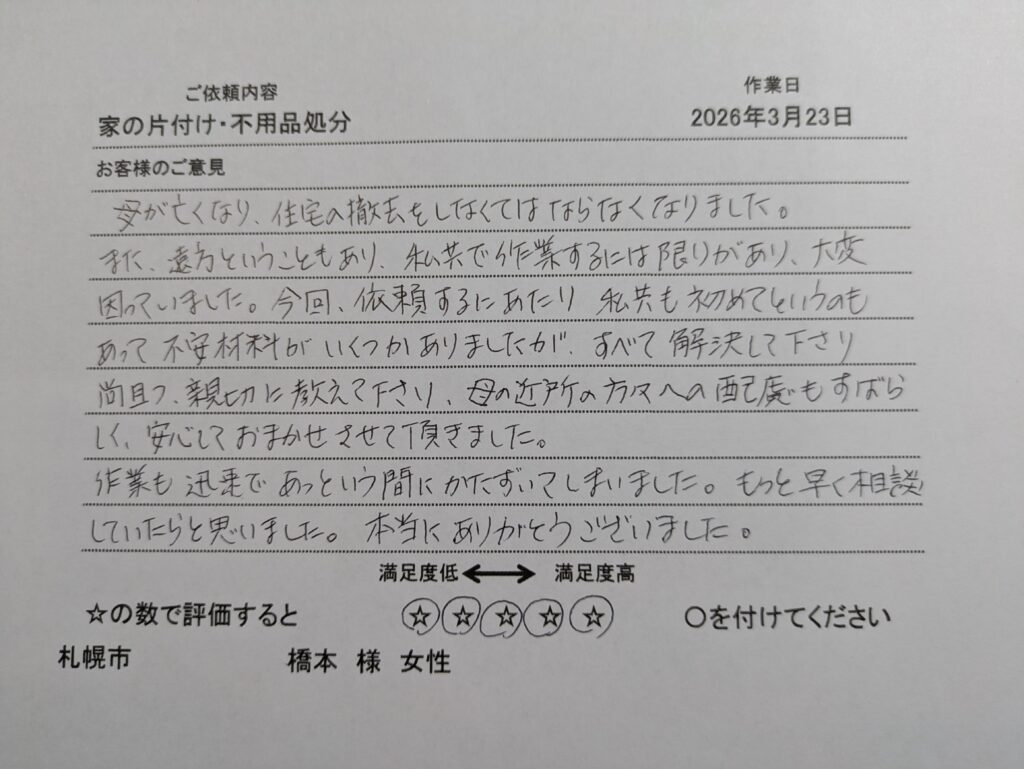 ご依頼内容
作業日
家の片付け・不用品処分
2026年3月23日
お客様のご意見
母が亡くなり、住宅の撤去をしなくてはならなくなりました。
また、遠方ということもあり、私共で作業するには限りがあり、大変
困っていました。今回、依頼するにあたり 私共も初めてというのも
あって 不安材料が いくつかありましたが、すべて 解決して下さり
尚且つ、親切に教えて下さり、母の近所の方々への配慮もすばら
しく、安心しておまかせさせて頂きました。
作業も 迅速で あっという間に かたずいてしまいました。もっと早く相談
していたらと思いました。本当にありがとうございました。
満足度低 ⟷ 満足度高
☆の数で評価すると ☆☆☆☆☆ 〇を付けてください
札幌市 橋本 様 女性